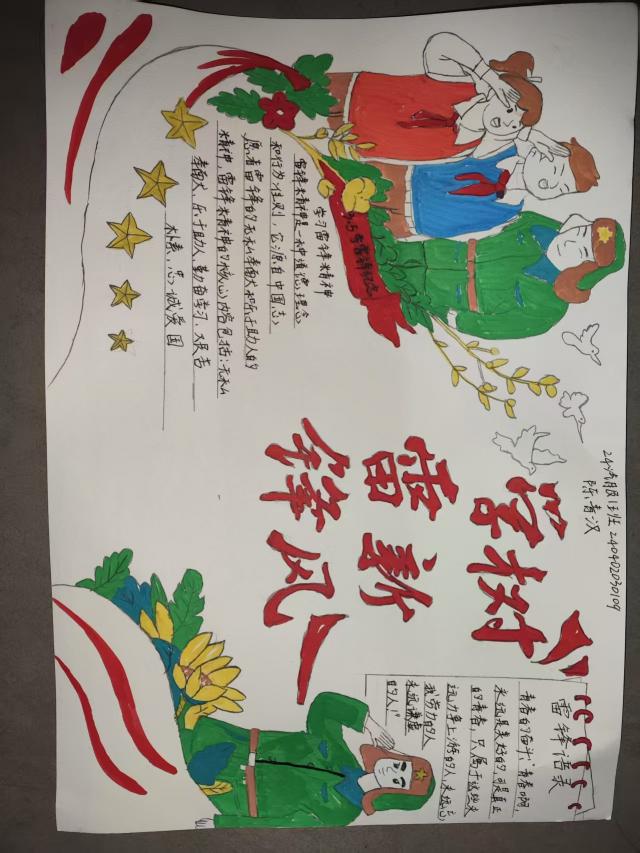 24汽服1班 240402030109
陈青汉
学雷锋
树新风
3.5学雷锋纪念
学习雷锋精神
雷锋精神是一种道德理念
和行为准则,它源自中国志
愿者雷锋的无私奉献和乐于助人的
精神,雷锋精神的核心内容包括:无私
奉献、乐于助人、勤奋学习、艰苦
朴素、忠诚爱国
雷锋语录
青春的 青春啊,
永远是美好的,可是真正
的青春,只属于这些永
远力争上游的人,永远忘
我劳动的人
永远谦虚
的人!"